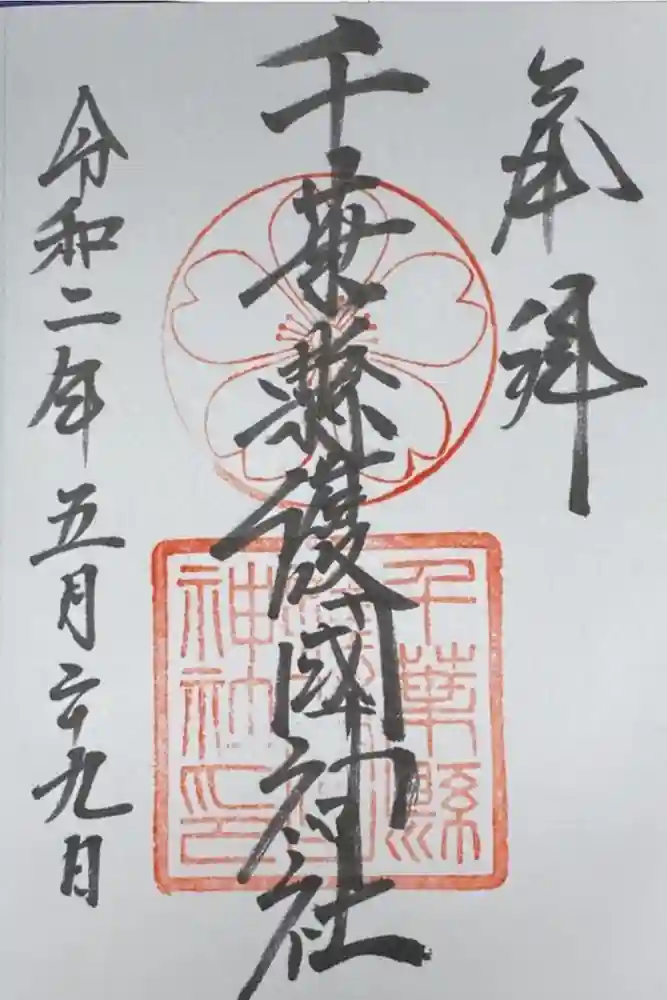 奉拝
千葉縣護國神社
千葉縣
護國
神社印
令和二年五月二十九日